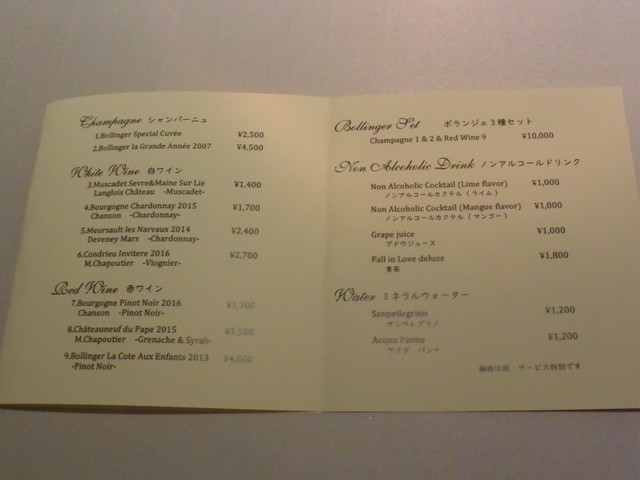 Champagne シャンパーニュ
1.Bollinger Special Cuvée ¥2,500
2.Bollinger la Grande Année 2007 ¥4,500
White Wine 白ワイン
3.Muscadet Sevre&Maine Sur Lie ¥1,400
Langlois Château -Muscadet-
4.Bourgogne Chardonnay 2015 ¥1,700
Chanson -Chardonnay-
5.Meursault les Narvaux 2014 ¥2,400
Deveney Mars -Chardonnay-
6.Condrieu Invitere 2016 ¥2,700
M.Chapoutier -Viognier-
Red Wine 赤ワイン
7.Bourgogne Pinot Noir 2016 ¥1,700
Chanson -Pinot Noir-
8.Châteauneuf du Pape 2015 ¥2,500
M.Chapoutier -Grenache & Syrah-
9.Bollinger La Cote Aux Enfants 2013 ¥4,000
-Pinot Noir-
Bollinger Set ボランジェ3種セット
Champagne 1 & 2 & Red Wine 9 ¥10,000
Non Alcoholic Drink ノンアルコールドリンク
Non Alcoholic Cocktail (Lime flavor) ¥1,000
ノンアルコールカクテル(ライム)
Non Alcoholic Cocktail (Mangue flavor) ¥1,000
ノンアルコールカクテル(マンゴー)
Grape juice ¥1,000
ブドウジュース
Fall in Love deluxe ¥1,800
Water ミネラルウォーター
Sanpellegrino ¥1,200
サンペレグリノ
Acqua Panna ¥1,200
アクア パンナ
価格は税・サービス料別です